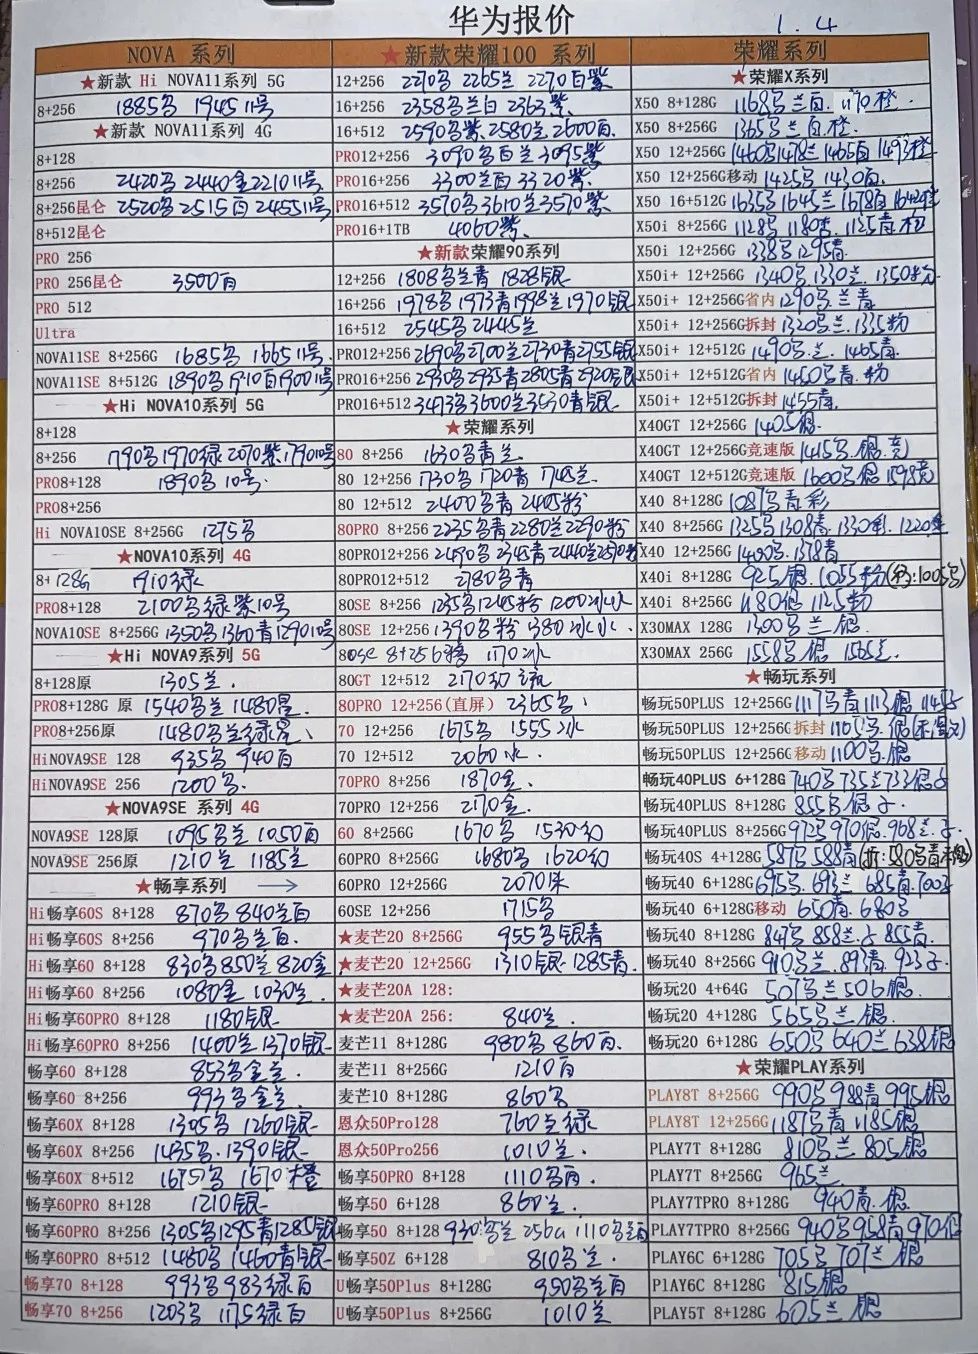 华为报价
1.4
NOVA 系列
★新款 Hi NOVA11系列 5G
8+256 1885 1945 11号
★新款 NOVA11系列 4G
8+128
8+256 2420 2440金 2210 11号
8+256昆仑 2520 2515百 2455 11号
8+512昆仑
PRO 256
PRO 256昆仑 3500百
PRO 512
Ultra
NOVA11SE 8+256G 1685 1665 11号.
NOVA11SE 8+512G 1890 1910百 1900 11号
★Hi NOVA10系列 5G
8+128
8+256 1790 1970绿 2070紫 1790 10号
PRO8+128 1890 10号.
PRO8+256
Hi NOVA10SE 8+256G 1275
★NOVA10系列 4G
8+128G 1910绿
PRO8+128 2100绿紫10号
NOVA10SE 8+256G 1350 1360青 1290 10号
★Hi NOVA9系列 5G
8+128原 1305兰.
PRO8+128G 原 1540兰 1480星.
PRO8+256原 1480兰绿星.
HiNOVA9SE 128 935 940百
HiNOVA9SE 256 1200
★NOVA9SE 系列 4G
NOVA9SE 128原 1095兰 1050百
NOVA9SE 256原 1210兰 1185兰
★畅享系列 →
Hi畅享60S 8+128 870 840兰百
Hi畅享60S 8+256 970兰百.
Hi畅享60 8+128 830 850兰 820金
Hi畅享60 8+256 1080金 1030兰.
Hi畅享60PRO 8+128 1180银
Hi畅享60PRO 8+256 1400兰 1370银
畅享60 8+128 853金兰.
畅享60 8+256 993金兰.
畅享60X 8+128 1305 1260银
畅享60X 8+256 1435. 1390银
畅享60X 8+512 1675 1670橙
畅享60PRO 8+128 1210银
畅享60PRO 8+256 1305 1295青 1285银
畅享60PRO 8+512 1480 1460青银
畅享70 8+128 993 983绿百
畅享70 8+256 1203 1175绿百
★新款荣耀100 系列
12+256 2270 2265兰 2270百紫
16+256 2358兰白 2363紫
16+512 2590紫. 2580兰 2600百.
PRO12+256 3090百兰 3095紫
PRO16+256 3300兰百 3320紫.
PRO16+512 3570 3610兰 3570紫
PRO16+1TB 4060紫.
★新款荣耀90系列
12+256 1808兰青 1828银
16+256 1978 1973青 1998兰 1970银
16+512 2545 2445兰
PRO12+256 2690 2700兰 2730青 2755银
PRO16+256 2930 2935青 2805青 2920银
PRO16+512 3473 3600兰 3530青银
★荣耀系列
80 8+256 1630青兰
80 12+256 1730 1720青 1745兰.
80 12+512 2400青 2405粉
80PRO 8+256 2235青 2280兰 2290粉
80PRO12+256 2490 2345青 2440兰
80PRO12+512 2780青
80SE 8+256 1235 1245粉 1200冰水
80SE 12+256 1390粉 1380冰水.
80se 8+256 1170冰
80GT 12+512 2170
80PRO 12+256(直屏) 2365.
70 12+256 1675 1555冰
70 12+512 2060冰.
70PRO 8+256 1870金.
70PRO 12+256 2170金.
60 8+256G 1670 1530幻
60PRO 8+256G 1680 1620幻
60PRO 12+256G 2070
60SE 12+256 1715
★麦芒20 8+256G 955银青
★麦芒20 12+256G 1310银 1285青.
★麦芒20A 128:
★麦芒20A 256: 840兰.
麦芒11 8+128G 980 860百.
麦芒11 8+256G 1210百
麦芒10 8+128G 860
恩众50Pro128 760兰绿
恩众50Pro256 1010兰.
畅享50PRO 8+128 1110百.
畅享50 6+128 860兰.
畅享50 8+128 930兰 256G 1110兰百
畅享50Z 6+128 810兰.
U畅享50Plus 8+128G 950兰百
U畅享50Plus 8+256G 1010兰
荣耀系列
★荣耀X系列
X50 8+128G 1168兰百. 1170橙.
X50 8+256G 1365兰百橙.
X50 12+256G 1460 1478兰 1465百 1493橙
X50 12+256G移动 1425 1430百.
X50 16+512G 1635 1645兰 1678百 1642橙
X50i 8+256G 1128 1180 1125青
X50i 12+256G 1338 1295青
X50i+ 12+256G 1340 1330兰. 1350粉
X50i+ 12+256G省内 1290兰青
X50i+ 12+256G拆封 1320兰. 1335粉
X50i+ 12+512G 1490.兰. 1465青.
X50i+ 12+512G省内 1450青.粉
X50i+ 12+512G拆封 1455青.
X40GT 12+256G 1405银.
X40GT 12+256G竞速版 1415.银.
X40GT 12+512G竞速版 1600银 1598
X40 8+128G 1087青彩
X40 8+256G 1325 1308青. 1330彩. 1220
X40 12+256G 1400. 1378青
X40i 8+128G 925银. 1055粉
X40i 8+256G 1180银 1125粉
X30MAX 128G 1300兰银
X30MAX 256G 1558银 1565兰.
★畅玩系列
畅玩50PLUS 12+256G 1117青 1113银
畅玩50PLUS 12+256G拆封 1105.银
畅玩50PLUS 12+256G移动 1100.银.
畅玩40PLUS 6+128G 740 735兰 733银
畅玩40PLUS 8+128G 855银
畅玩40PLUS 8+256G 972 970银. 968兰.
畅玩40S 4+128G 587 588青(拆:580青)
畅玩40 6+128G 695. 693兰 685青. 700
畅玩40 6+128G移动 650青. 680
畅玩40 8+128G 847 858兰. 855青.
畅玩40 8+256G 910.兰. 893青. 923
畅玩20 4+64G 507兰 506银.
畅玩20 4+128G 565兰银.
畅玩20 6+128G 650 640兰 638银
★荣耀PLAY系列
PLAY8T 8+256G 990 988青 995银
PLAY8T 12+256G 1187青 1185银
PLAY7T 8+128G 810兰 805银
PLAY7T 8+256G 965兰
PLAY7TPRO 8+128G 940青.银.
PLAY7TPRO 8+256G 940 958青 970银
PLAY6C 6+128G 705 707兰银
PLAY6C 8+128G 815银
PLAY5T 8+128G 605兰银